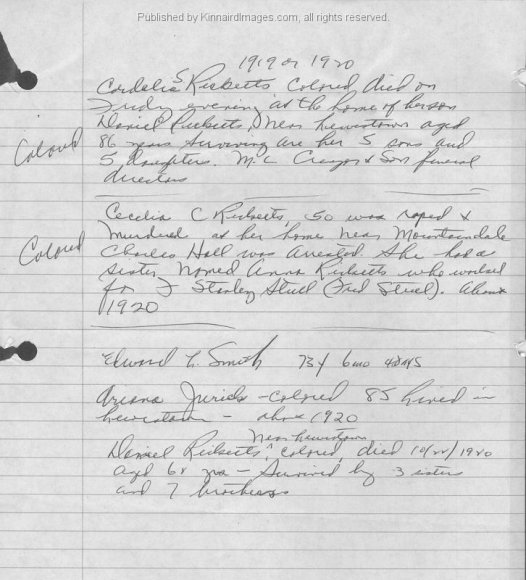 Published by KinnairdImages.com, all rights reserved.
1919 or 1920
Cordelia S Ricketts Colored died on
Friday evening at the home of her son
Daniel Ricketts, Near Lewistown aged
Colored
86 years surviving are her 5 sons and
5 daughters. M. L. Creager & Son funeral
directors
Cecelia C Ricketts, 50 was raped &
murdered at her home near Mountaindale
Colored
Charles Hall was arrested She had a
sister named Anna Ricketts who worked
for J Stanley Stull (Fred Stull). About
1920
Edward L. Smith 73 y 6 mo 4 days
Jurick - colored 85 lived in
Lewistown - about 1920
Near Lewistown
Daniel Ricketts, colored, died 1920
aged 68 yrs - Survived by 3 sisters
and 7 brothers